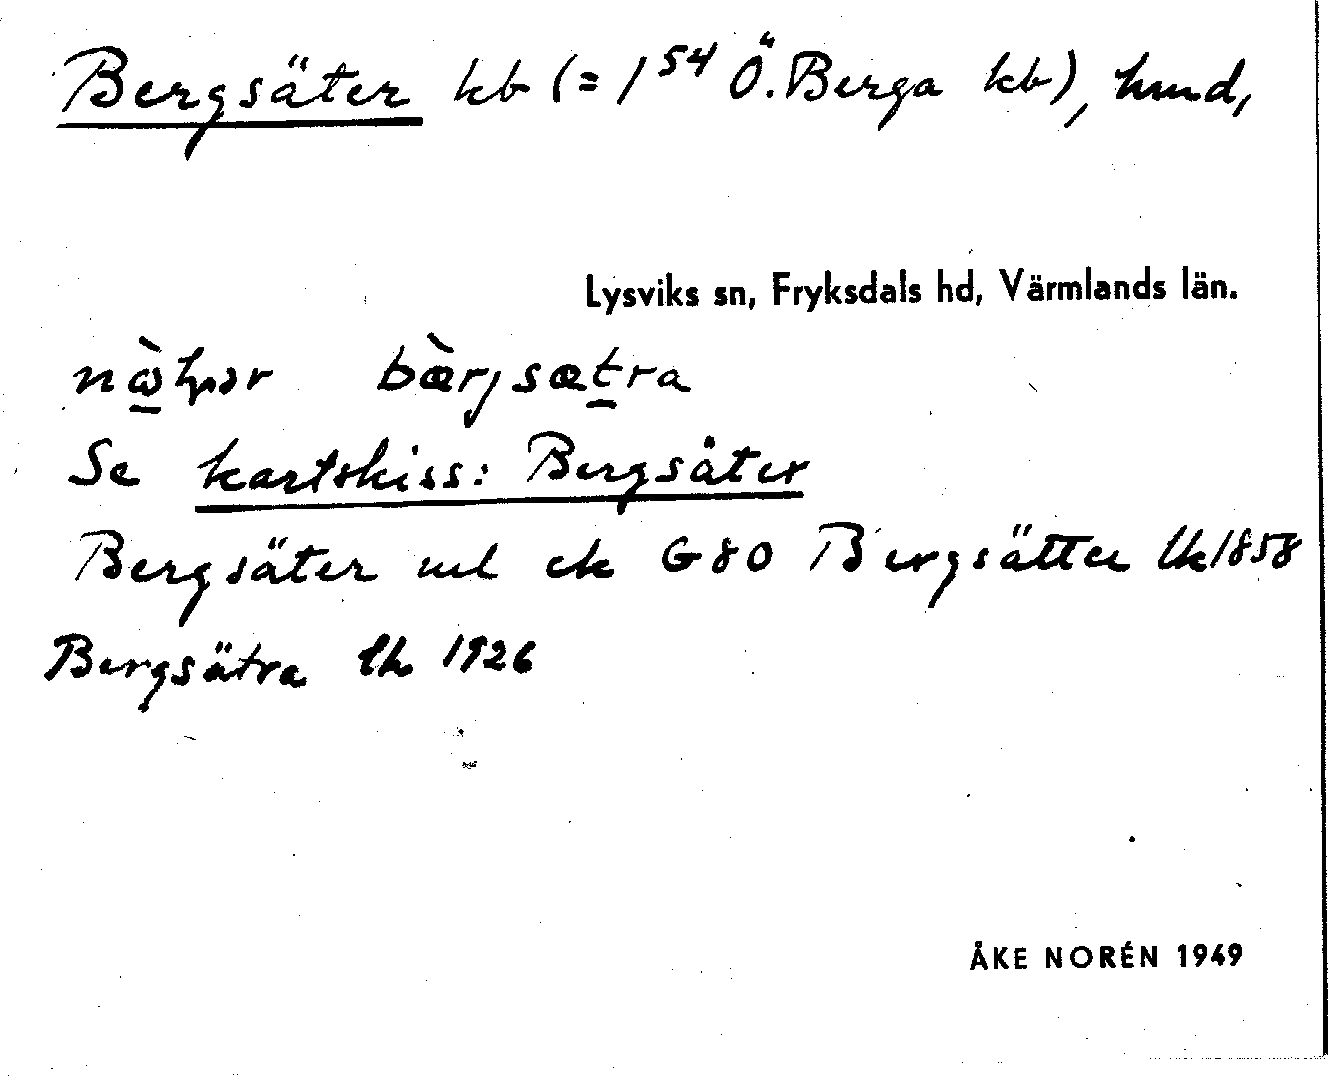 Bergsäter kb (= 1⁵⁴ Ö. Berga kb), hmd,
Lysviks sn, Fryksdals hd, Värmlands län.
bæ̀rjsætra
Se kartskiss: Bergsäter
Bergsäter uel ek G80 Bergsätter lk 1858
Bergsätra lk 1926
ÅKE NORÉN 1949